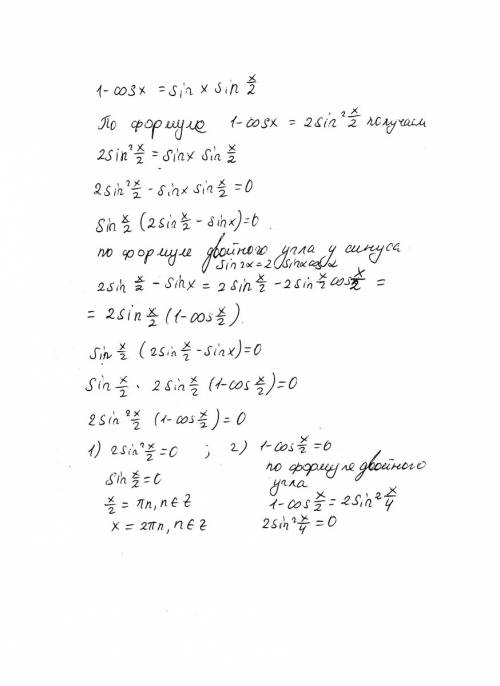 1-cosx = sin x sin x/2
По формуле 1-cosx = 2sin² x/2 получаем
2sin² x/2 = sinx sin x/2
2sin² x/2 - sinx sin x/2 = 0
sin x/2 (2sin x/2 - sinx) = 0.
по формуле двойного угла у синуса
sin2x = 2 sinx cosx
2sin x/2 - sinx = 2sin x/2 - 2sin x/2 cos x/2 =
= 2sin x/2 (1-cos x/2).
sin x/2 (2sin x/2 - sinx) = 0
sin x/2 · 2sin x/2 (1-cos x/2) = 0
2sin² x/2 (1-cos x/2) = 0
1) 2sin² x/2 = 0 ; 2) 1-cos x/2 = 0
sin x/2 = 0 по формуле двойного угла
x/2 = πn, n∈Z 1-cos x/2 = 2sin² x/4
x = 2πn, n∈Z 2sin² x/4 = 0